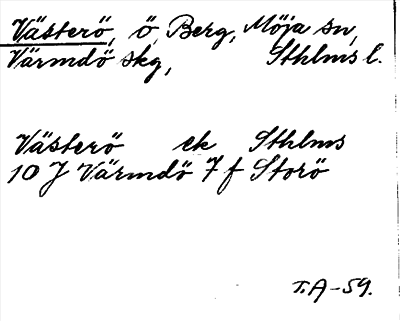 Västerö, ö, Berg, Möja sn,
Värmdö skg, Sthlms l.
Västerö ek Sthlms
10 J Värmdö 7 f Storö
T.A-59.